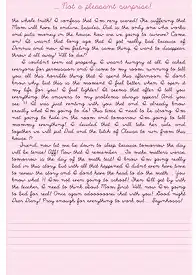 ... Not a pleasant surprise!
the whole truth! I confess that I'm very scared! I'm suffering that
Mom will have to endure. Besides, Dad is the only one who works
and puts money in the house, how are we going to survive? Come
on! I want that being says that I get really bad because of
and now I'm feeling the same thing, I want to disappear,
throw it all away! Will to die!!
I couldn't even eat properly, I wasn't hungry at all. I asked
everyone for permission and I came to my room running to tell
you all this horrible thing that I spend this afternoon. I don't
know why, but this is the moment I feel better, when I open a
my life for you! I feel lighter! It seems that after I tell you
everything the answers to my problems always appear! And you
see: !! I was just ending with you that and I already know
exactly what I'm going to do! This time it need to be strong, I'm
not going to hide in the room and tomorrow I'm going to tell
mommy everything! I decided that I will take her side and
together we will put Dad and the bitch of Clarice to run from this
house!!
Friend, now let me lie down to sleep because tomorrow the day
will be tense! Off! Now that I remember ... To make matters worse,
tomorrow is the day of the math test! I know I'm going really
bad in this story, but with all that happened I didn't even have time
to review the story and I don't have the head to do the math ... You
know what? I'm not even going to school! Then I'll get by with
the teacher, I need to think about Mom first! Well, now I'm going
to bed for real! Once again adooooooro what with you! Good night
Dear Diary! Pray enough for everything to work out... Bjimhossss!